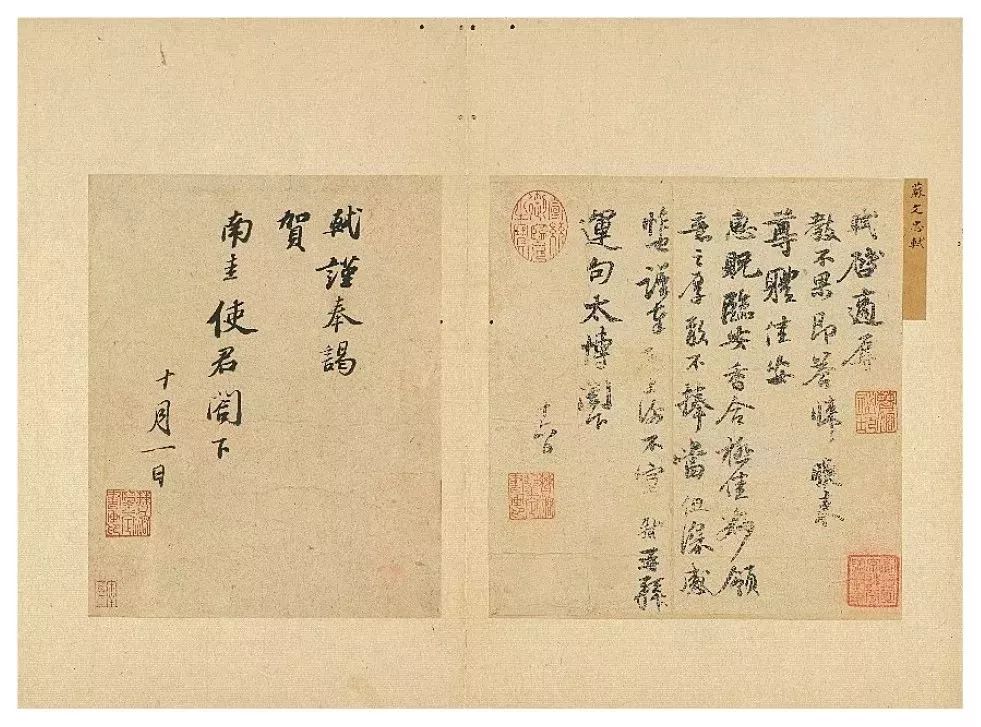 蘇文忠軾
軾啓適辱
教不果即答悚悚晚來
尊體佳安
惠貺臨安香合極佳妙領
意之厚敢不捧當但深感
怍也謹奉啓上謝不宣軾再拜
運句太博閣下
十六日
軾謹奉謁
賀
南圭使君閤下
十月一日